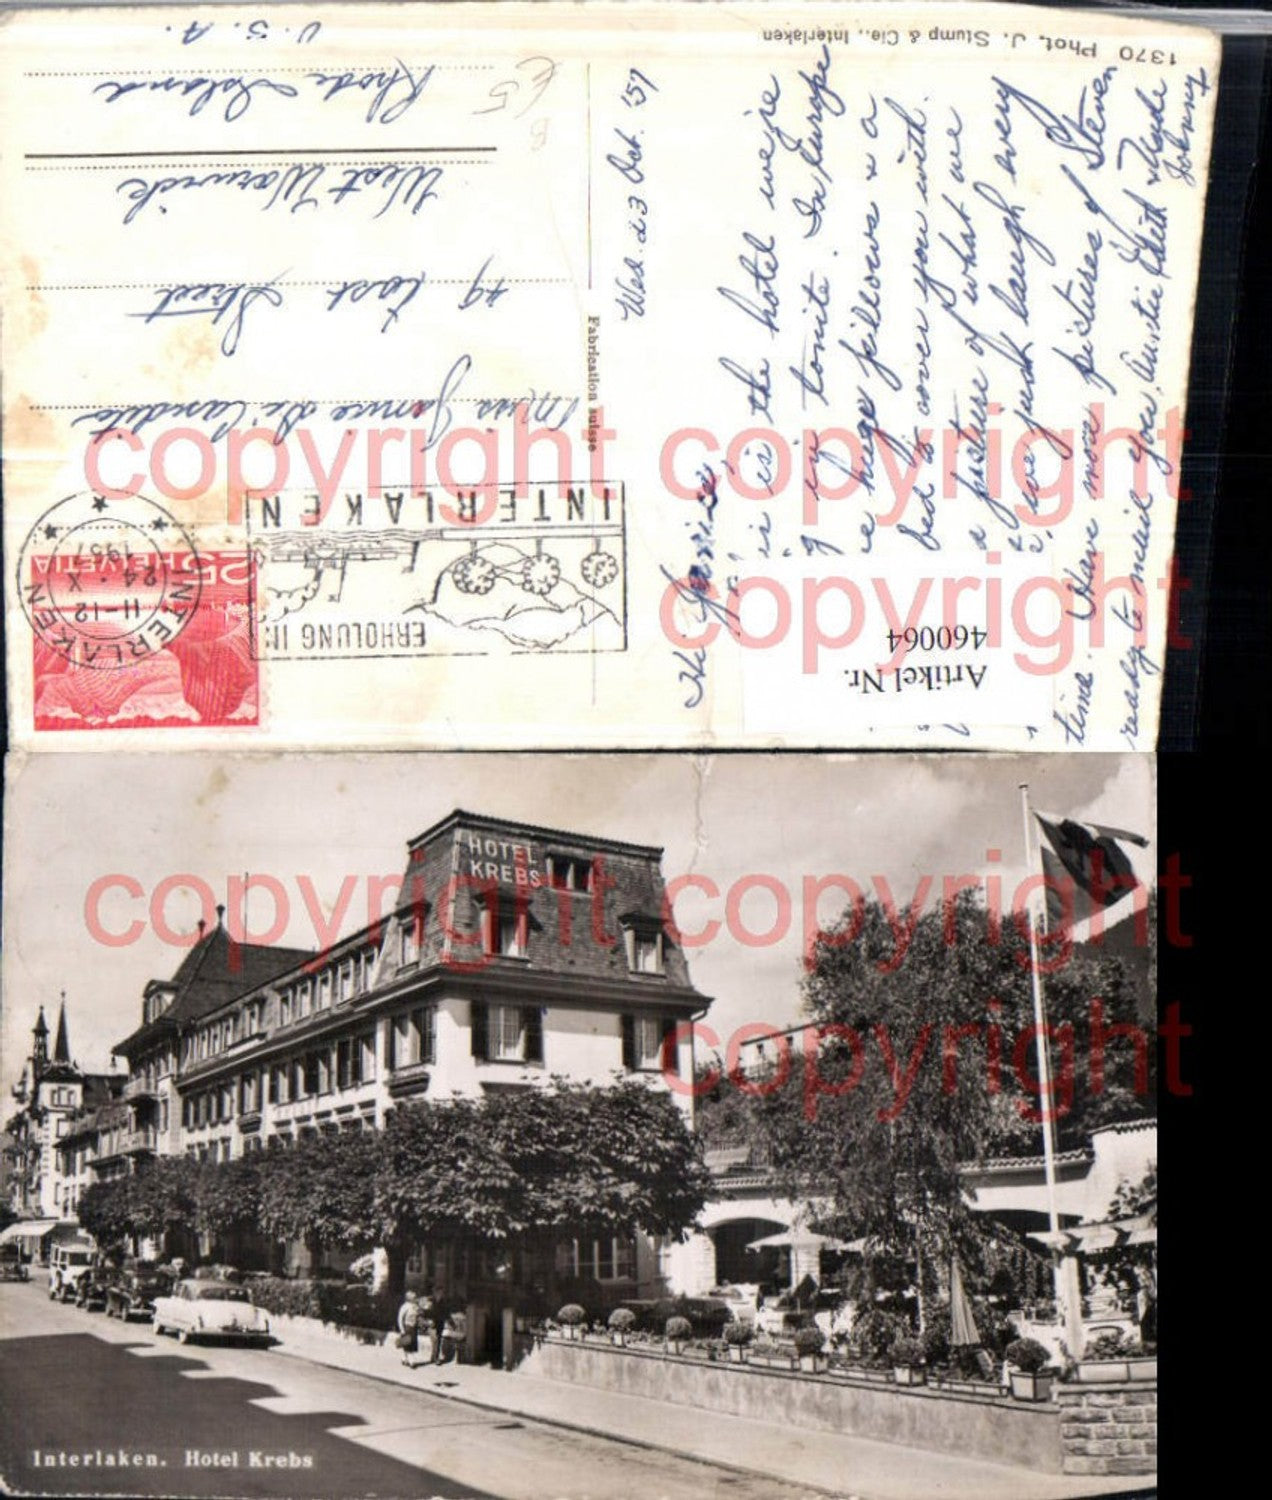 1370 Phot. J. Stump & Cie., Interlaken
Wed. 23 Oct. '57
Hi Janice,
is is the hotel we're
g in tonite. In Europe
e huge pillows & a
bed to cover you with.
a picture of what we
we just laugh every
time. Have more pictures of Steven
ready to mail you, Auntie Edith & Clyde
Johnny
X
Fabrication suisse
ERHOLUNG IN
INTERLAKEN
INTERLAKEN
24. X
1957
11-12
INTERLAKEN
25 HELVETIA
Miss Janice Di Candia
49 East Street
West Warwick
Rhode Island
U. S. A.
€5
B
Artikel Nr.
460064
copyright copyright
copyright
HOTEL
KREBS
copyright copyright
copyright
Interlaken. Hotel Krebs